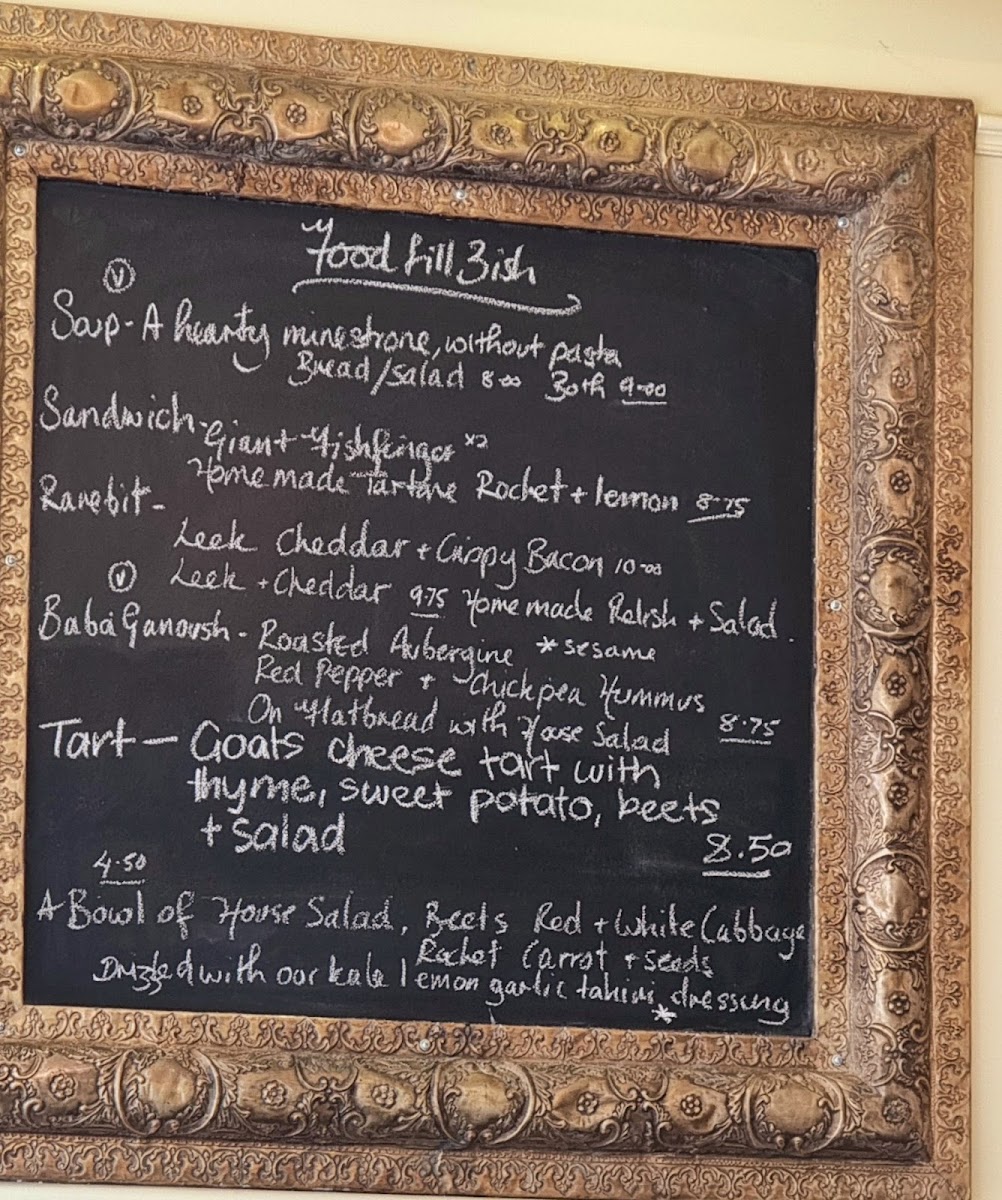 Food till 3ish
Ⓥ
Soup - A hearty minestrone, without pasta
Bread/salad 8.00 Both 9.00
Sandwich - Giant Fishfinger x2
Home made Tartare Rocket + lemon 8.75
Rarebit -
Leek Cheddar + Crispy Bacon 10.00
Ⓥ Leek + Cheddar 9.75 Home made Relish + Salad.
Baba Ganoush - Roasted Aubergine *sesame
Red Pepper + Chickpea Hummus
On Flatbread with House Salad 8.75
Tart - Goats cheese tart with
thyme, sweet potato, beets
+ salad 8.50
4.50
A Bowl of House Salad, Beets Red + White Cabbage
Rocket Carrot + seeds
Drizzled with our kale lemon garlic tahini * dressing